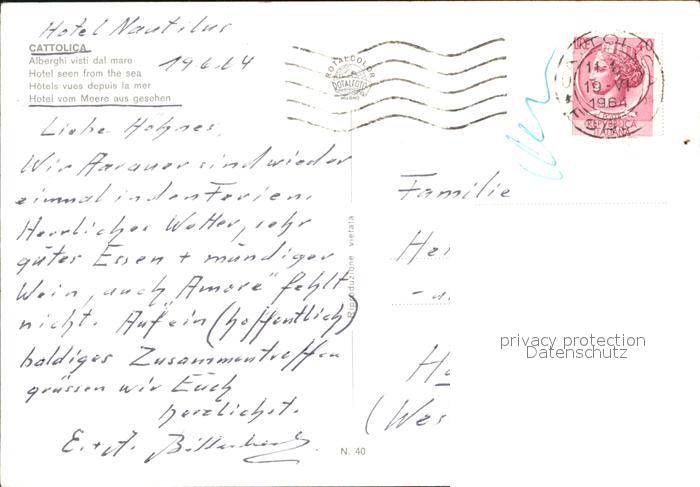 Hotel Nautilus
CATTOLICA
19.6.64
Alberghi visti dal mare
Hotel seen from the sea
Hôtels vues depuis la mer
Hotel vom Meere aus gesehen
Liebe Höhnes,
Wir Aarauer sind wieder
einmal in den Ferien.
Herrliches Wetter, sehr
gutes Essen + mündiger
Wein, auch "Amore" fehlt
nicht. Auf ein (hoffentlich)
baldiges Zusammentreffen
grüssen wir Euch
herzlichst.
E. + A.
N. 40
Riproduzione vietata
ROTALCOLOR
ROTALFOTO
MILANO
LIRE 40
19 VI
1964
REPUBBLICA
ITALIANA
Familie
Hei
Ha
(Wes
privacy protection
Datenschutz